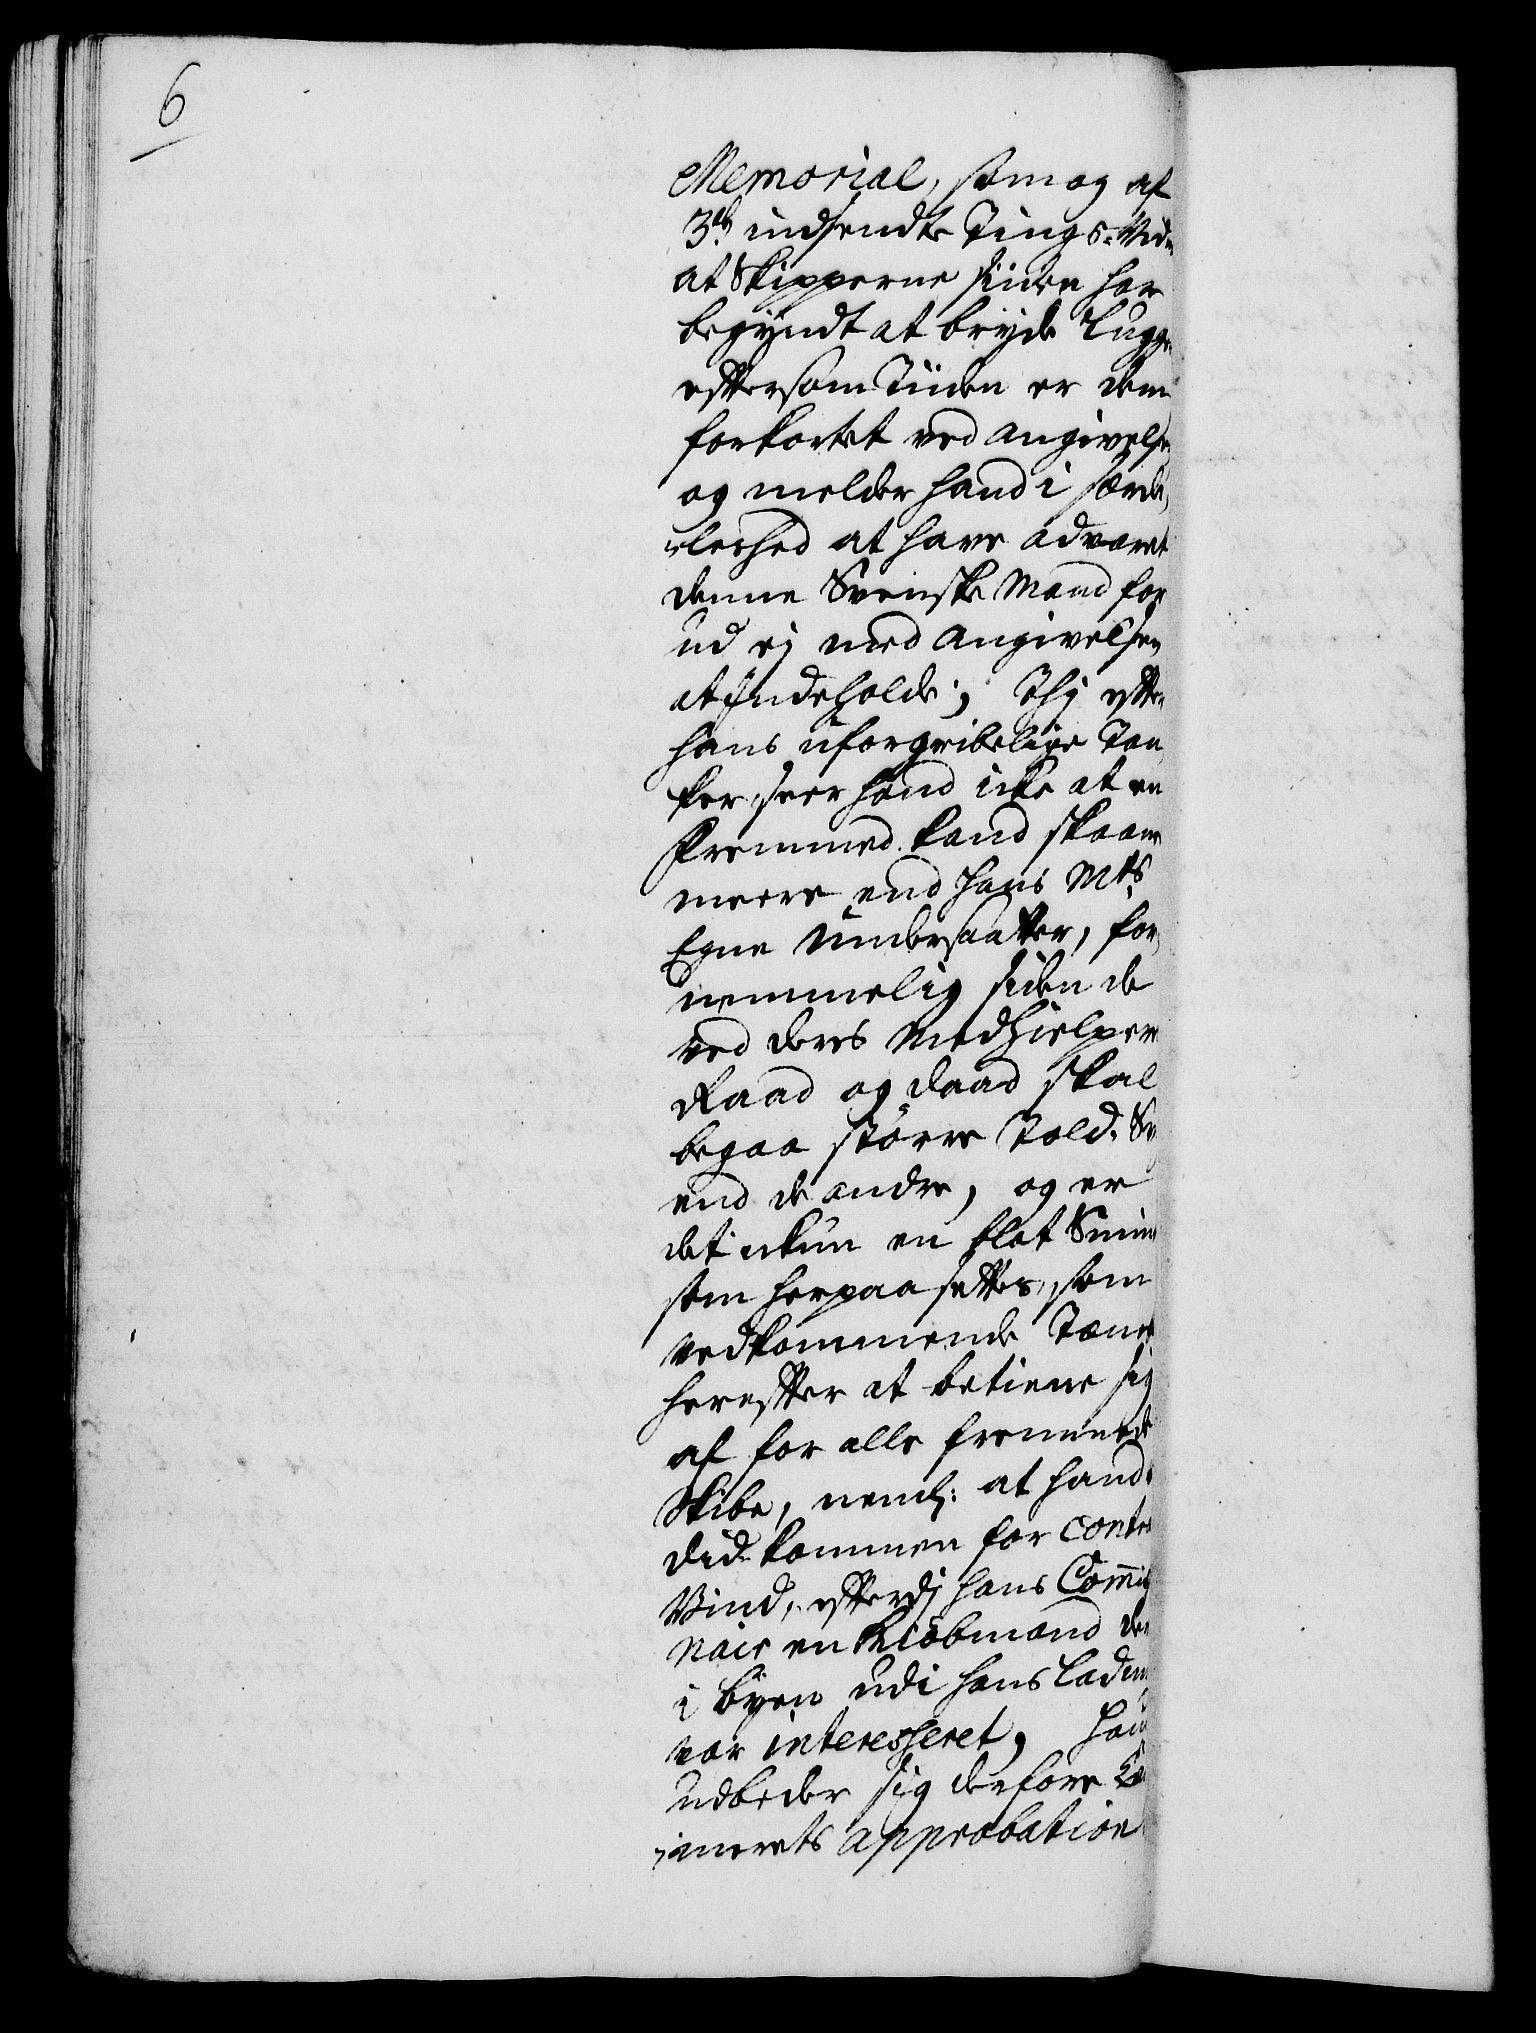 6
Memorial, som og af
3de indsendte Tings-Vid
at Skipperne siden har
begyndt at bryde Lugge
eftersom Tiiden er dem
forkortet ved Angivelse
og melder hand i særde,
leshed at have advaret
denne Svenske Mand for
ud ej med Angivelsen
at Indeholde; Thj efter
hans uforgribelige Tan,
ker, seer hand icke at en
Fremmed kand skaane
meere end hans Mts
Egne Undersaatter, for,
nemmelig siden de
ved deres Medhielpere
Raad og daad skal
begaa større Told-Sv
end de andre, og er
det ikun en slet
som herpaa settes, som
Vedkommende
herefter at betiene sig
af for alle fremmede
Skibe, neml: at hand
did kommen for Contra
Vind, efterdj hans Commis
nair en Kiøbmand der
i byen udi hans Laden
var interesseret, Hand
Udbeder sig derfore Ca
merets approbation